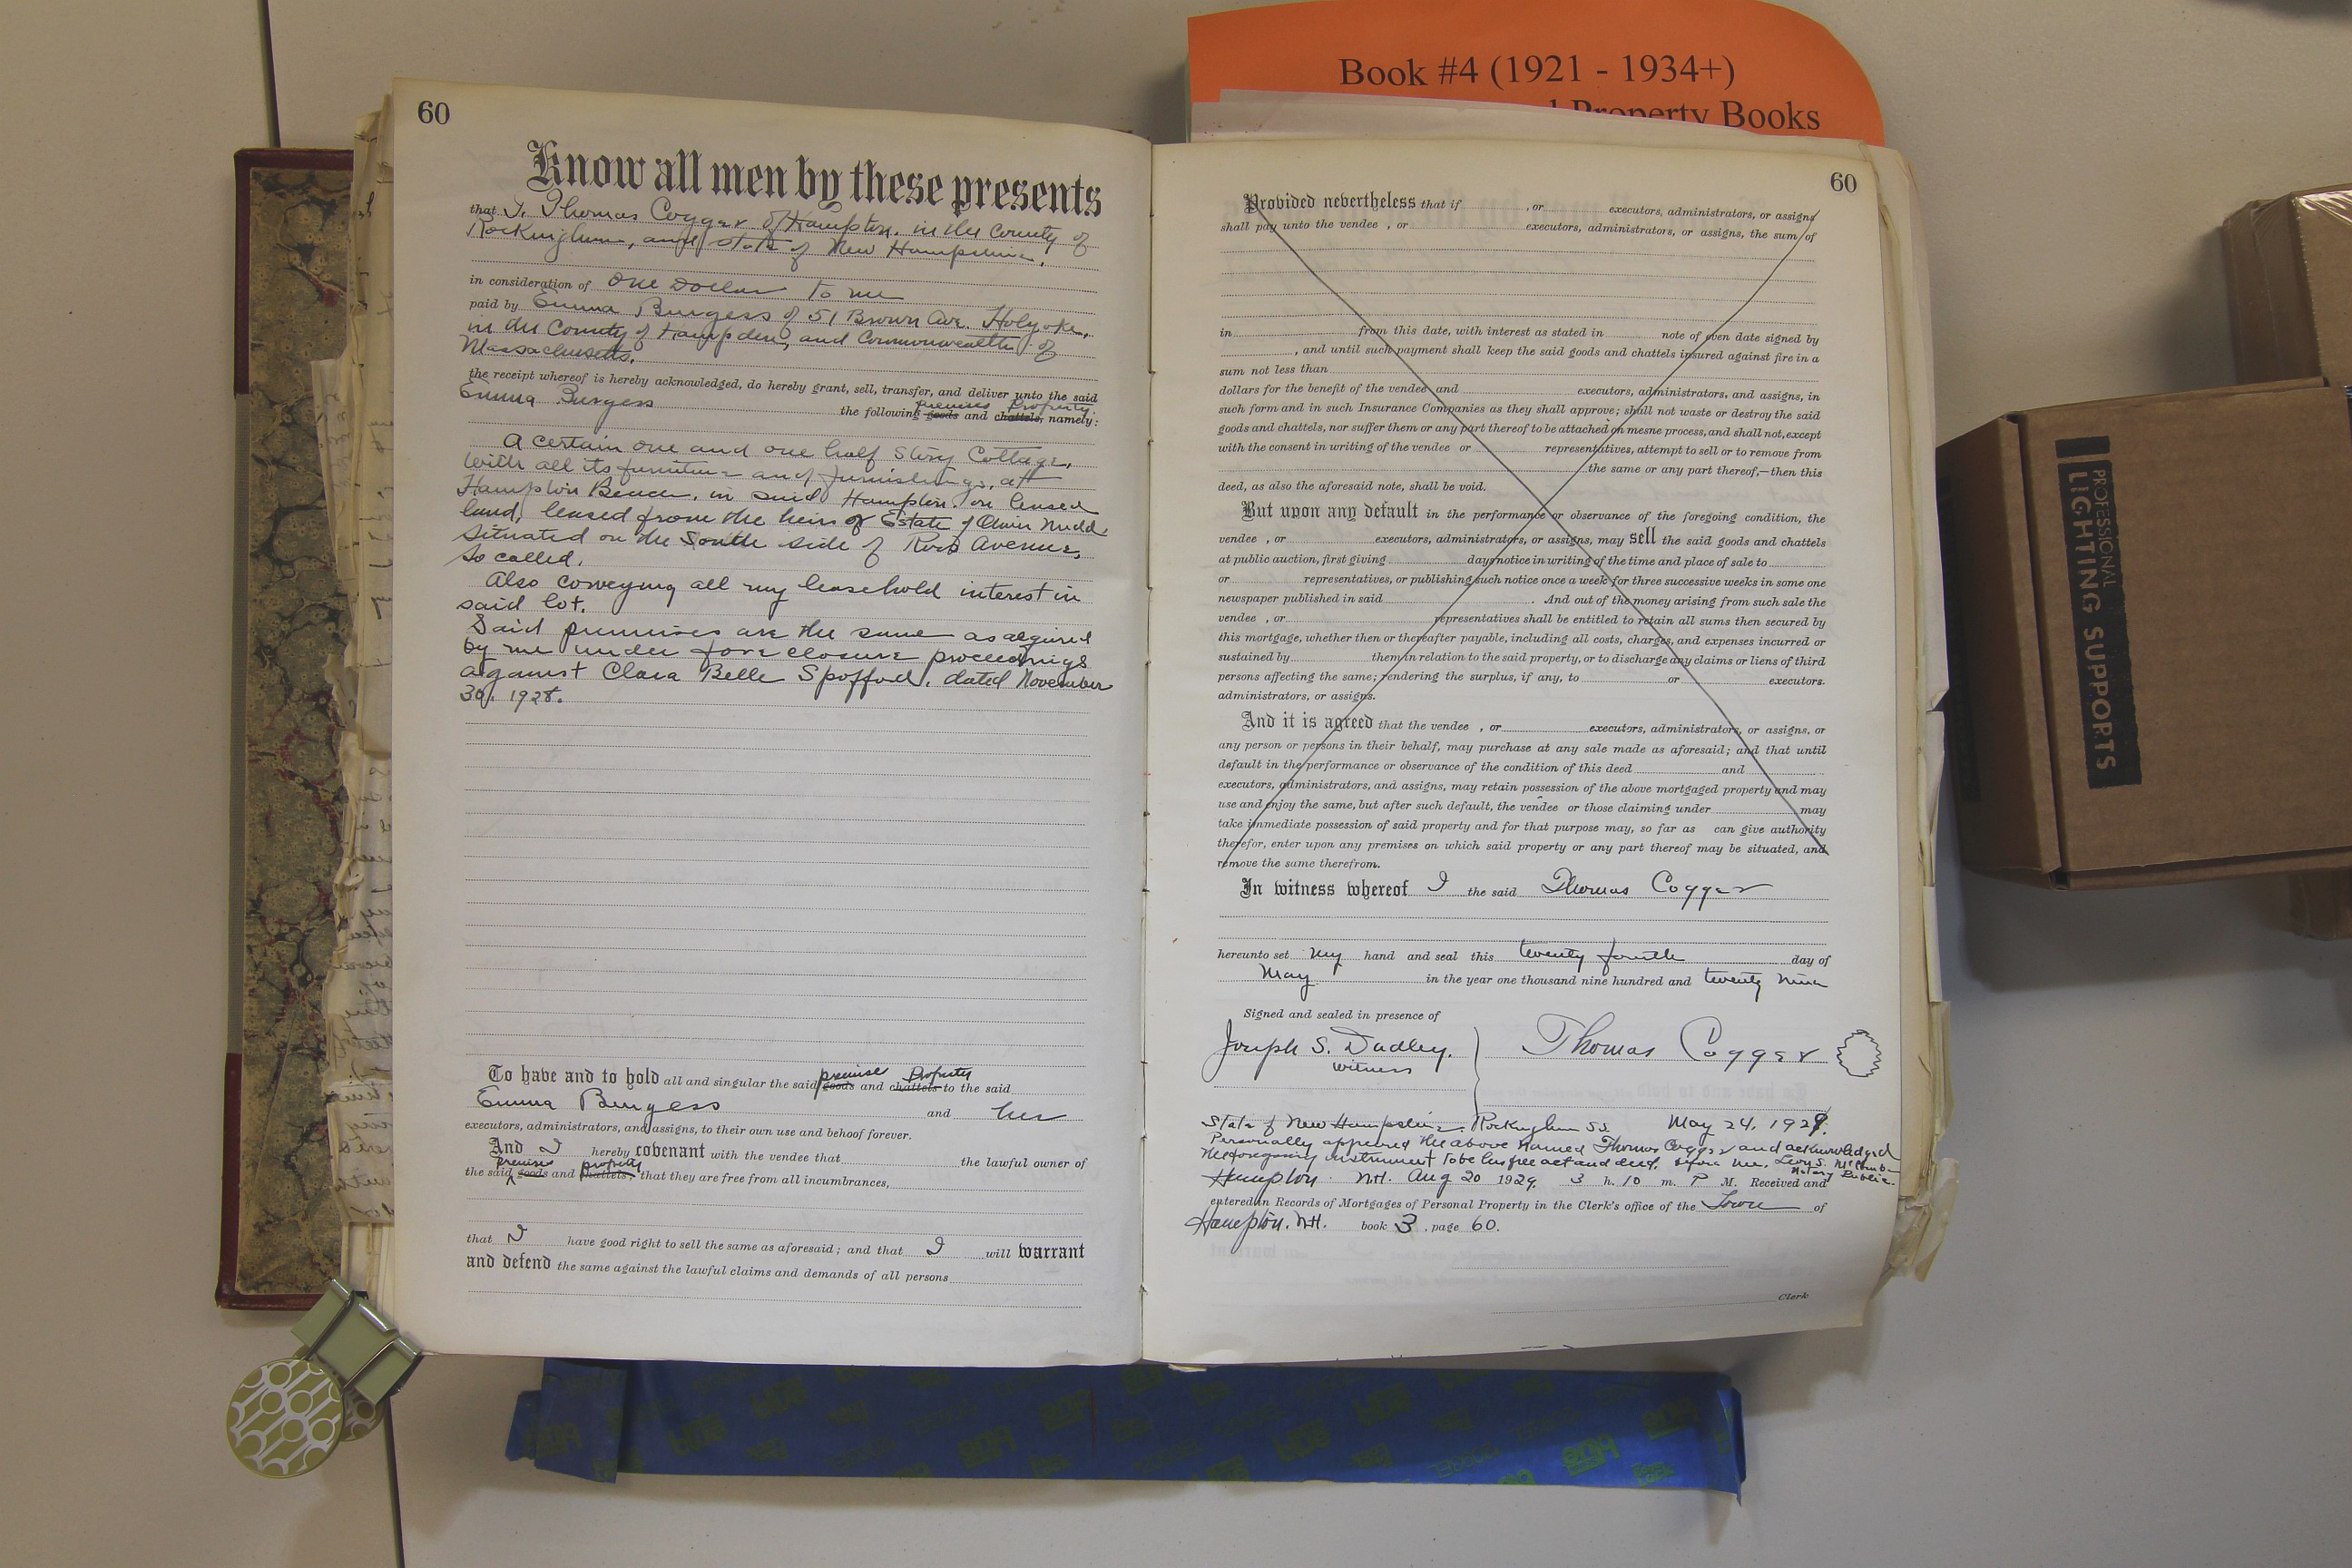 Book #4 (1921 - 1934+)
Property Books
60
Know all men by these presents
that I, Thomas Cogger of Hampton, in the County of
Rockingham, and State of New Hampshire,
in consideration of One Dollar to me
paid by Emma Burgess of 51 Brown Ave. Holyoke,
in the County of Hampden, and Commonwealth of
Massachusetts,
the receipt whereof is hereby acknowledged, do hereby grant, sell, transfer, and deliver unto the said
premises Property
Emma Burgess the following goods and chattels, namely:
A certain one and one half Story Cottage,
with all its furniture and furnishings, at
Hampton Beach, in said Hampton, on leased
land, leased from the heirs of Estate of Oliver Nudd
situated on the South side of Ross Avenue,
so called.
Also conveying all my leasehold interest in
said lot.
Said premises are the same as aquired
by me under foreclosure proceedings
against Clara Belle Spofford, dated November
30, 1928.
premise Property
To have and to hold all and singular the said goods and chattels to the said
Emma Burgess and her
executors, administrators, and assigns, to their own use and behoof forever.
And I hereby covenant with the vendee that the lawful owner of
premises property
the said goods and chattels; that they are free from all incumbrances,
that I have good right to sell the same as aforesaid; and that I will warrant
and defend the same against the lawful claims and demands of all persons
60
Provided nevertheless that if , or executors, administrators, or assigns
shall pay unto the vendee , or executors, administrators, or assigns, the sum of
in from this date, with interest as stated in note of even date signed by
, and until such payment shall keep the said goods and chattels insured against fire in a
sum not less than
dollars for the benefit of the vendee and executors, administrators, and assigns, in
such form and in such Insurance Companies as they shall approve; shall not waste or destroy the said
goods and chattels, nor suffer them or any part thereof to be attached on mesne process, and shall not, except
with the consent in writing of the vendee or representatives, attempt to sell or to remove from
the same or any part thereof,—then this
deed, as also the aforesaid note, shall be void.
But upon any default in the performance or observance of the foregoing condition, the
vendee , or executors, administrators, or assigns, may sell the said goods and chattels
at public auction, first giving days notice in writing of the time and place of sale to
or representatives, or publishing such notice once a week for three successive weeks in some one
newspaper published in said . And out of the money arising from such sale the
vendee , or representatives shall be entitled to retain all sums then secured by
this mortgage, whether then or thereafter payable, including all costs, charges, and expenses incurred or
sustained by them in relation to the said property, or to discharge any claims or liens of third
persons affecting the same; rendering the surplus, if any, to or executors.
administrators, or assigns.
And it is agreed that the vendee , or executors, administrators, or assigns, or
any person or persons in their behalf, may purchase at any sale made as aforesaid; and that until
default in the performance or observance of the condition of this deed and
executors, administrators, and assigns, may retain possession of the above mortgaged property and may
use and enjoy the same, but after such default, the vendee or those claiming under may
take immediate possession of said property and for that purpose may, so far as can give authority
therefor, enter upon any premises on which said property or any part thereof may be situated, and
remove the same therefrom.
In witness whereof I the said Thomas Cogger
hereunto set my hand and seal this twenty fourth day of
May in the year one thousand nine hundred and twenty nine
Signed and sealed in presence of
Joseph S. Dudley. Thomas Cogger
witness
State of New Hampshire, Rockingham SS. May 24, 1929.
Personally appeared the above named Thomas Cogger and acknowledged
the foregoing instrument to be his free act and deed, before me,
Notary Public.
Hampton N.H. Aug 20 1929, 3 h. 10 m. P M. Received and
entered in Records of Mortgages of Personal Property in the Clerk's office of the Town of
Hampton, N.H. book 3, page 60.
Clerk
PROFESSIONAL
LIGHTING SUPPORTS